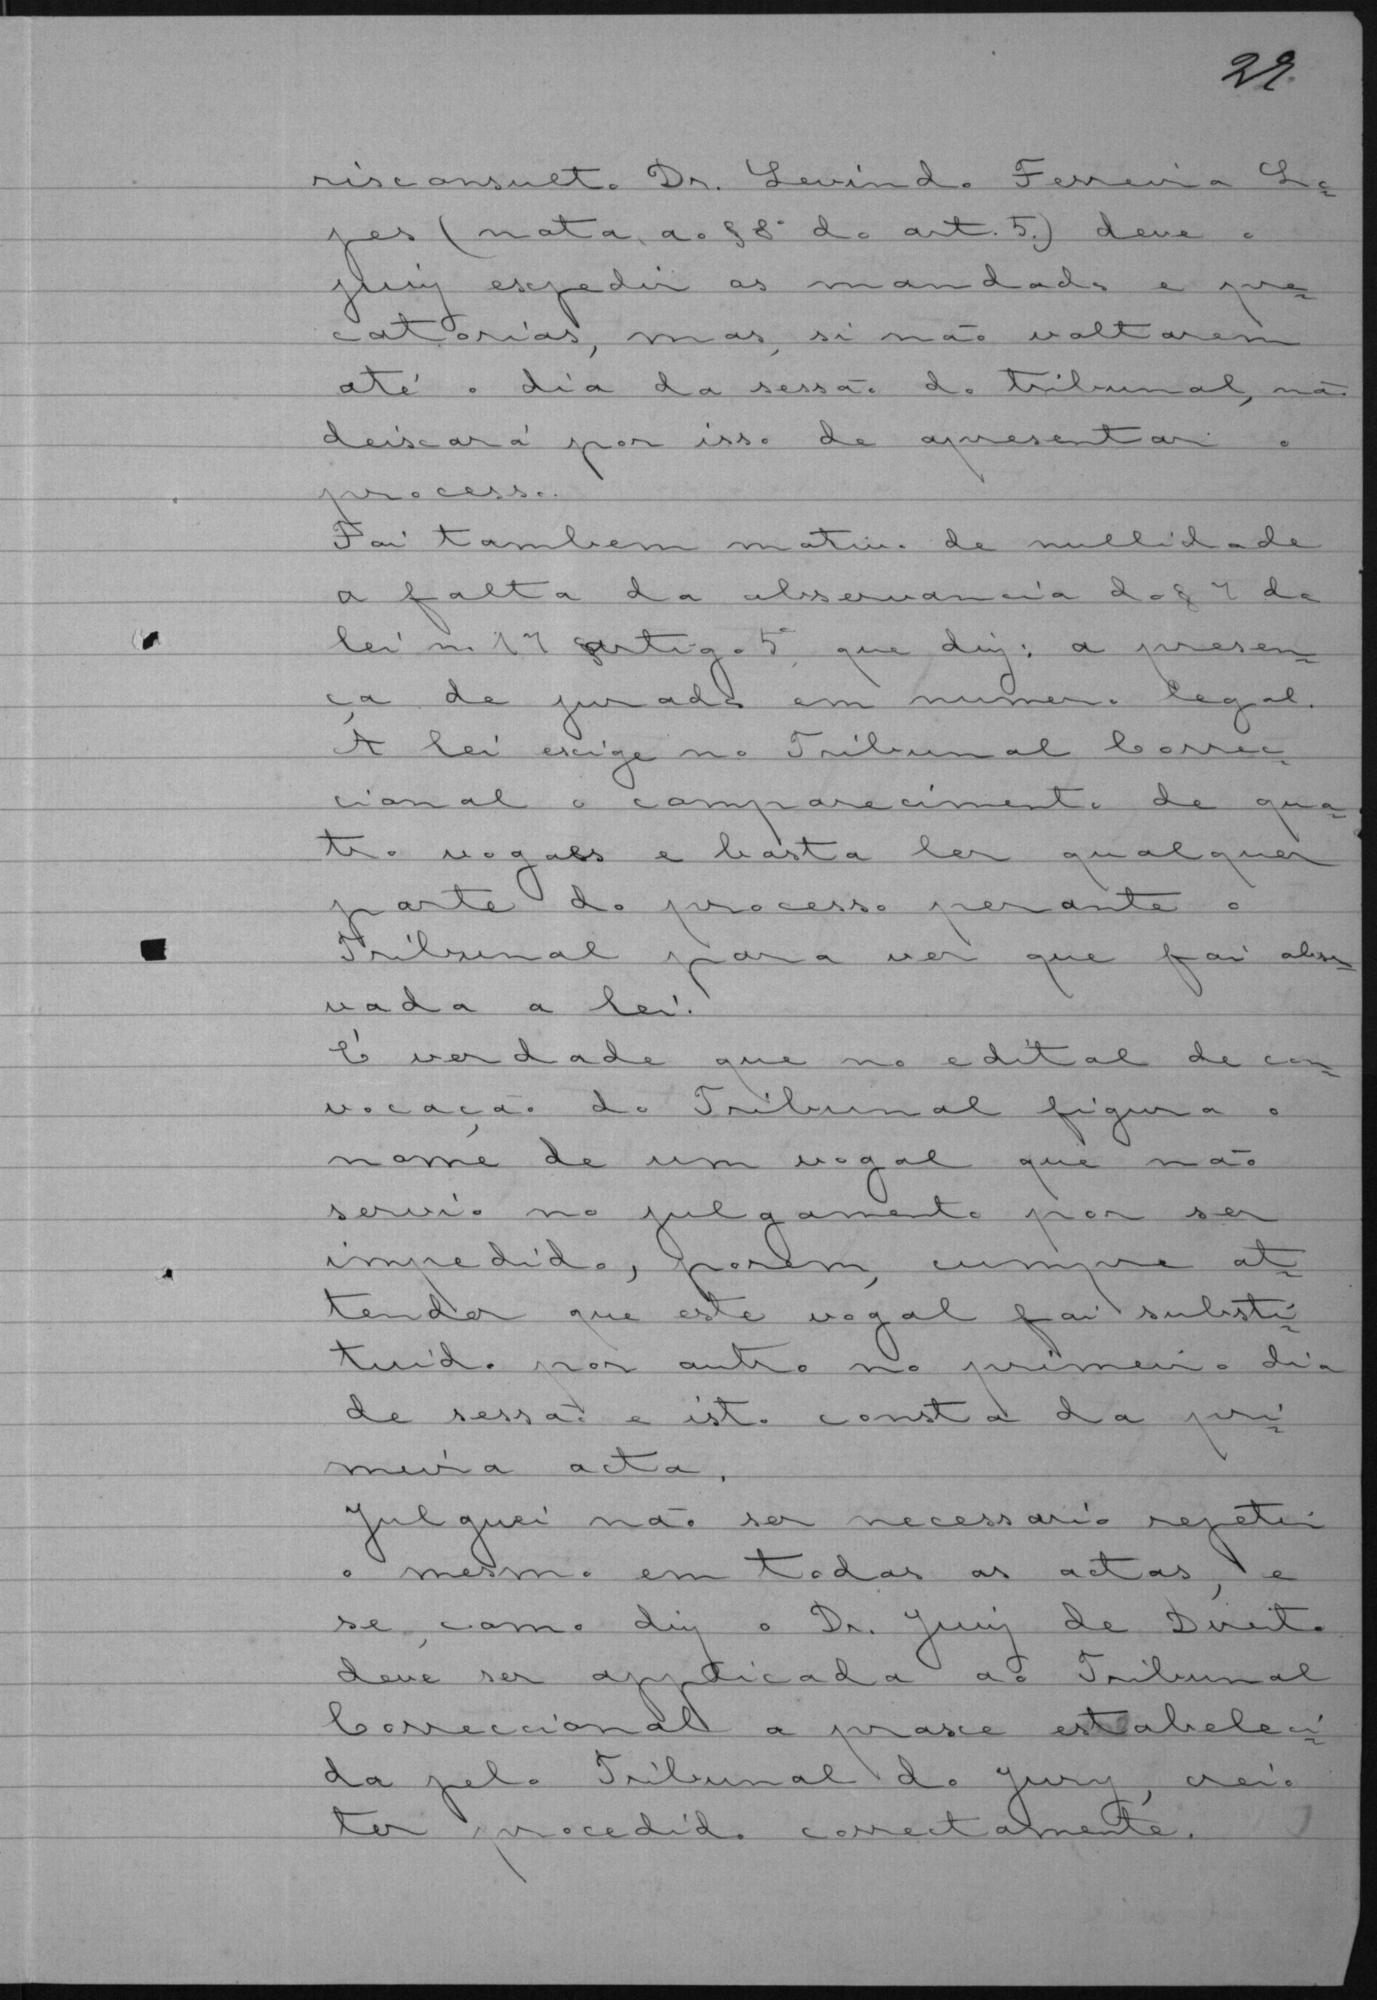 29
risconsulto Dr. Levindo Ferreira Lo-
pes (nota ao § 8º do art. 5.) deve o
juiz expedir os mandados e pre-
catorias, mas, si não voltarem
até o dia da sessão do tribunal, não
deixará por isso de apresentar o
processo.
Foi tambem motivo de nullidade
a falta da observancia do § 7 da
lei n. 17 artigo 5º, que diz: a presen-
ça de jurados em numero legal.
A lei exige no Tribunal Correc-
cional o comparecimento de qua-
tro vogaes e basta ler qualquer
parte do processo perante o
Tribunal para ver que foi obser-
vada a lei.
É verdade que no edital de con-
vocação do Tribunal figura o
nome de um vogal que não
servio no julgamento por ser
impedido, porem, cumpre at-
tender que este vogal foi substi-
tuido por outro no primeiro dia
de sessão e isto consta da pri-
meira acta.
Julguei não ser necessario repetir
o mesmo em todas as actas, e
se, como diz o Dr. Juiz de Direito
deve ser applicada ao Tribunal
Correccional a praxe estabeleci-
da pelo Tribunal do Jury, creio
ter procedido correctamente.